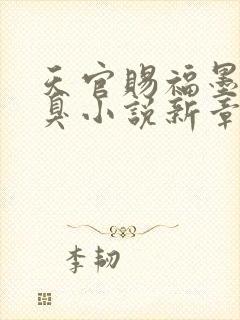 天官賜福墨
真小說新章
李韌